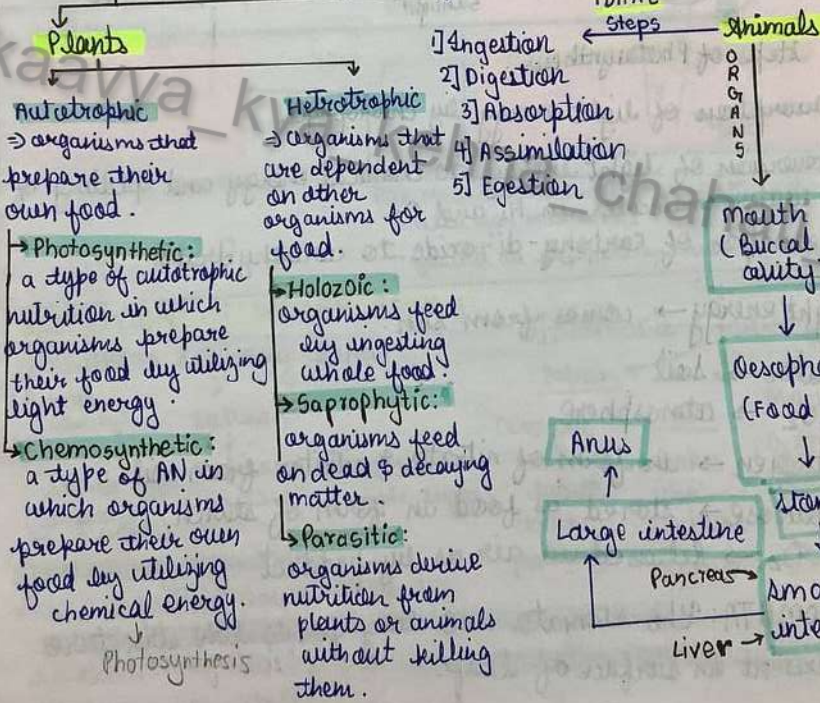 Plants
Autotrophic
⇒ organisms that
prepare their
own food.
Photosynthetic:
a type of autotrophic
nutrition in which
organisms prepare
their food by utilizing
light energy.
Chemosynthetic:
a type of AN in
which organisms
prepare their own
food by utilizing
chemical energy.
Photosynthesis
Hetrotrophic
⇒ organisms that
are dependent
on other
organisms for
food.
Holozoic:
organisms feed
by ingesting
whole food.
Saprophytic:
organisms feed
on dead & decaying
matter.
Parasitic:
organisms derive
nutrition from
plants or animals
without killing
them.
Steps
1] Ingestion
2] Digestion
3] Absorption
4] Assimilation
5] Egestion
Animals
ORGANS
mouth
(Buccal
cavity
Oesopha
(Food
stom
Pancreas
sma
inte
Liver
Large intestine
Anus
kaavya_kya_kehna_chahati